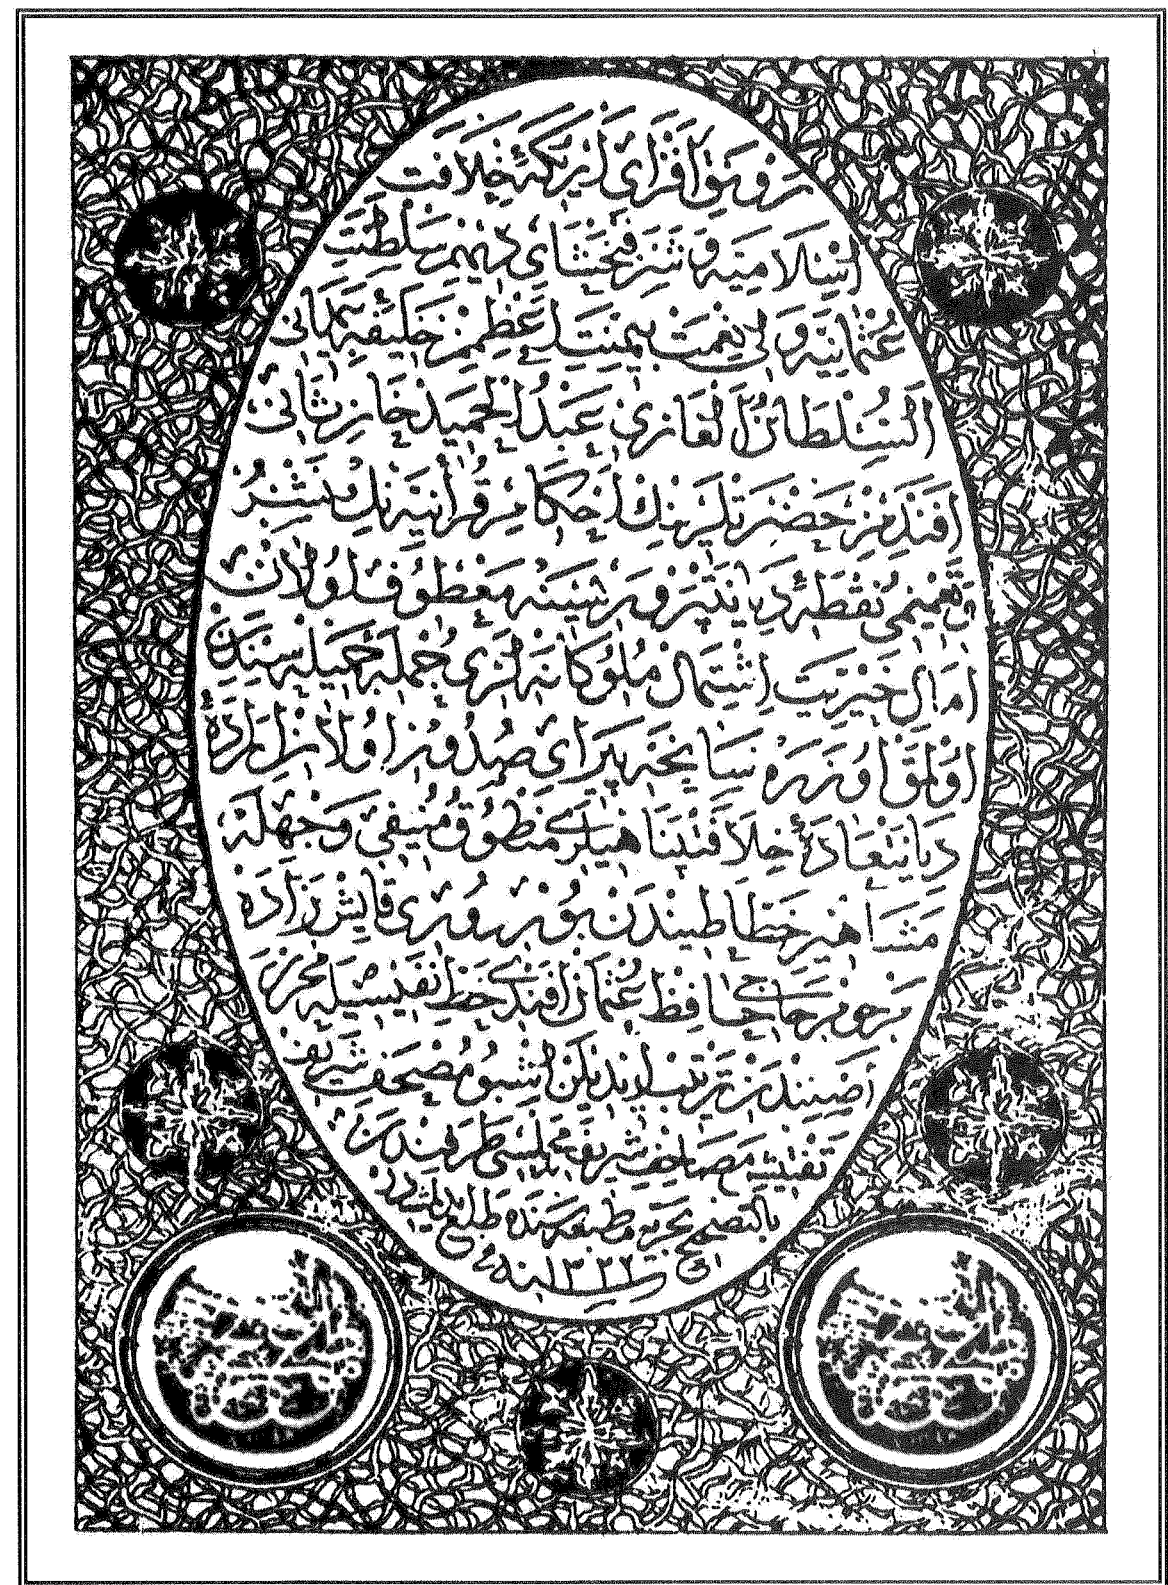 رونق افزای اریکهٔ خلافت
اسلامیه و شرفبخشای دیهیم سلطنت
عثمانیه ولی نعمت بیمنت اعظمز خلیفهٔ
السلطان الغازی عبد الحمید خان ثانی
افندمز حضرتلرینك احکام قرآنیه نك نشر
و تعمیمی نقطهٔ دیانتپرورینه معطوف اولان
امال خیریت اشتمال ملوکانه لری جملهٔ جمیله سندن
اولمق اوزره سانحه پیرای صدور اولان ارادهٔ
دیانتعادهٔ خلافتپناهیلری منطوق منیفی وجهله
مشاهیر خطاطیندن بوردوری قایش زاده
مرحوم حاجی حافظ عثمان افندی خط نفیسیله محرر
ترتیب ایدیلن اشبو مصحف شریف
تفتیش مصاحف شریفه مجلسی طرفندن
بالتصحیح بحریه مطبعه سنده طبع ایدلمشدر
سنه ١٣٢٢